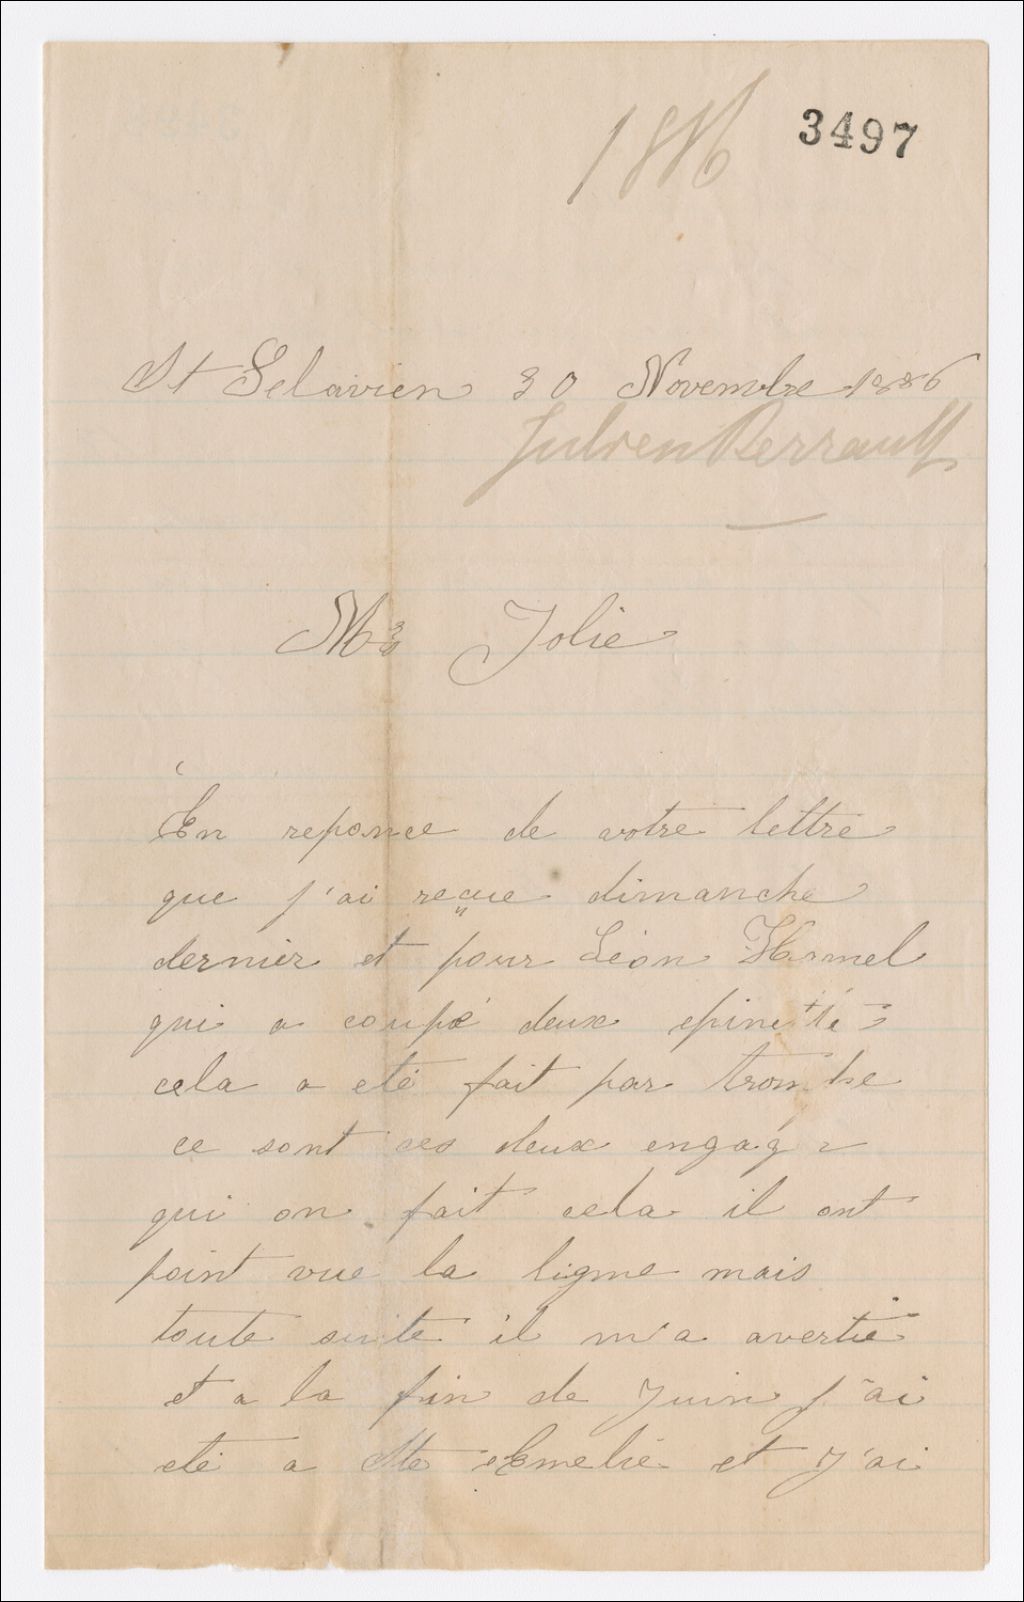 1886
3497
St Gelavien 30 Novembre 1886
Julien Perrault
Mr Jolie
En reponce de votre lettre
que j'ai reçue dimanche
dernier et pour Léon Hamel
qui a coupé deux epinette
cela a eté fait par trombe
ce sont ces deux engagé
qui on fait cela il ont
point vue la ligne mais
toute suite il m'a avertie
et a la fin de Juin j'ai
eté a Ste Emelie et J'ai